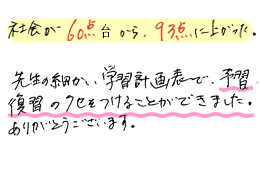 社会が60点台から、93点に上がった。
先生の細かい学習計画表で、予習、
復習のクセをつけることができました。
ありがとうございます。